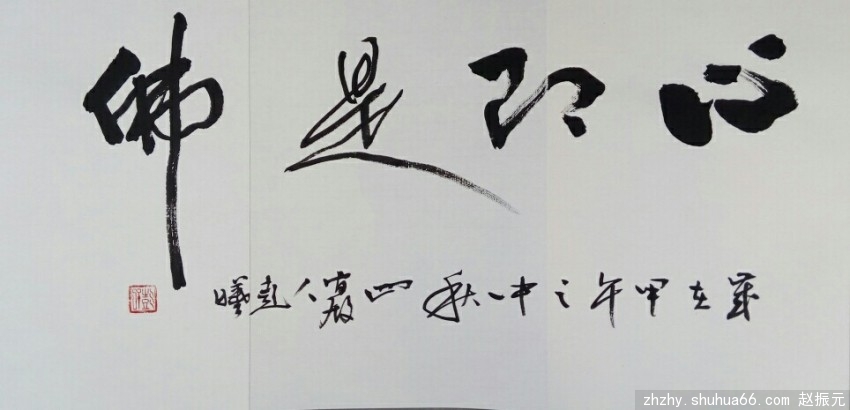 心即是佛
岁在甲午之中秋四
zhzhy.shuhua66.com 赵振元